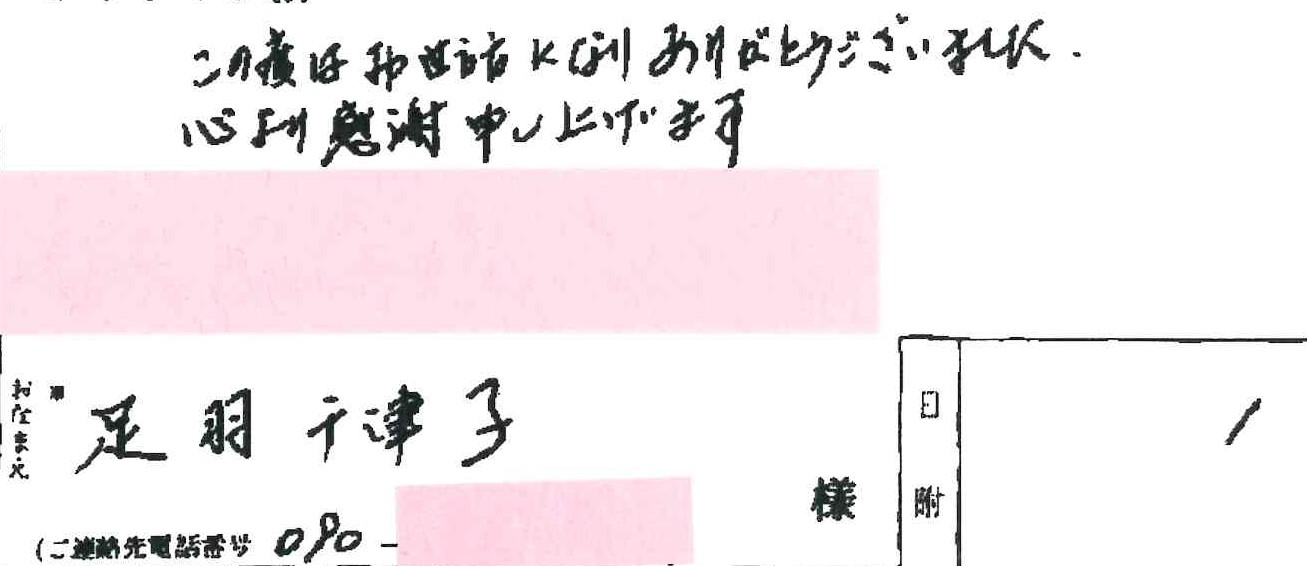 この度はお世話になりありがとうございました.
心より感謝申し上げます
おなまえ
※
足羽千津子
様
(ご連絡先電話番号 090-
日附